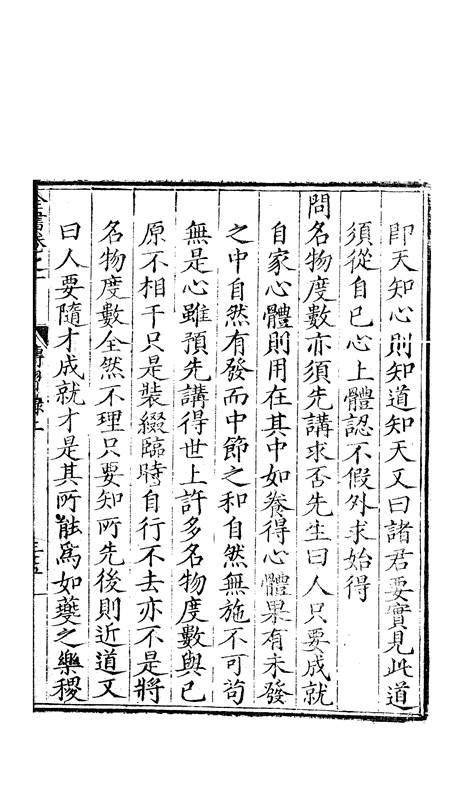 即天知心則知道知天又曰諸君要實見此道
須從自已心上體認不假外求始得
問名物度數亦須先講求否先生曰人只要成就
自家心體則用在其中如養得心體果有未發
之中自然有發而中節之和自然無施不可苟
無是心雖預先講得世上許多名物度數與已
原不相干只是裝綴臨時自行不去亦不是將
名物度數全然不理只要知所先後則近道又
曰人要隨才成就才是其所能為如夔之樂稷
全書卷之一
傳習錄上